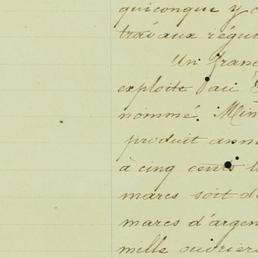 quiconque y
travaux régu
Un fran
exploite
nommé. Min
produit ann
à cinq cents
marcs soit d
marcs d'argen
mille ouvrier